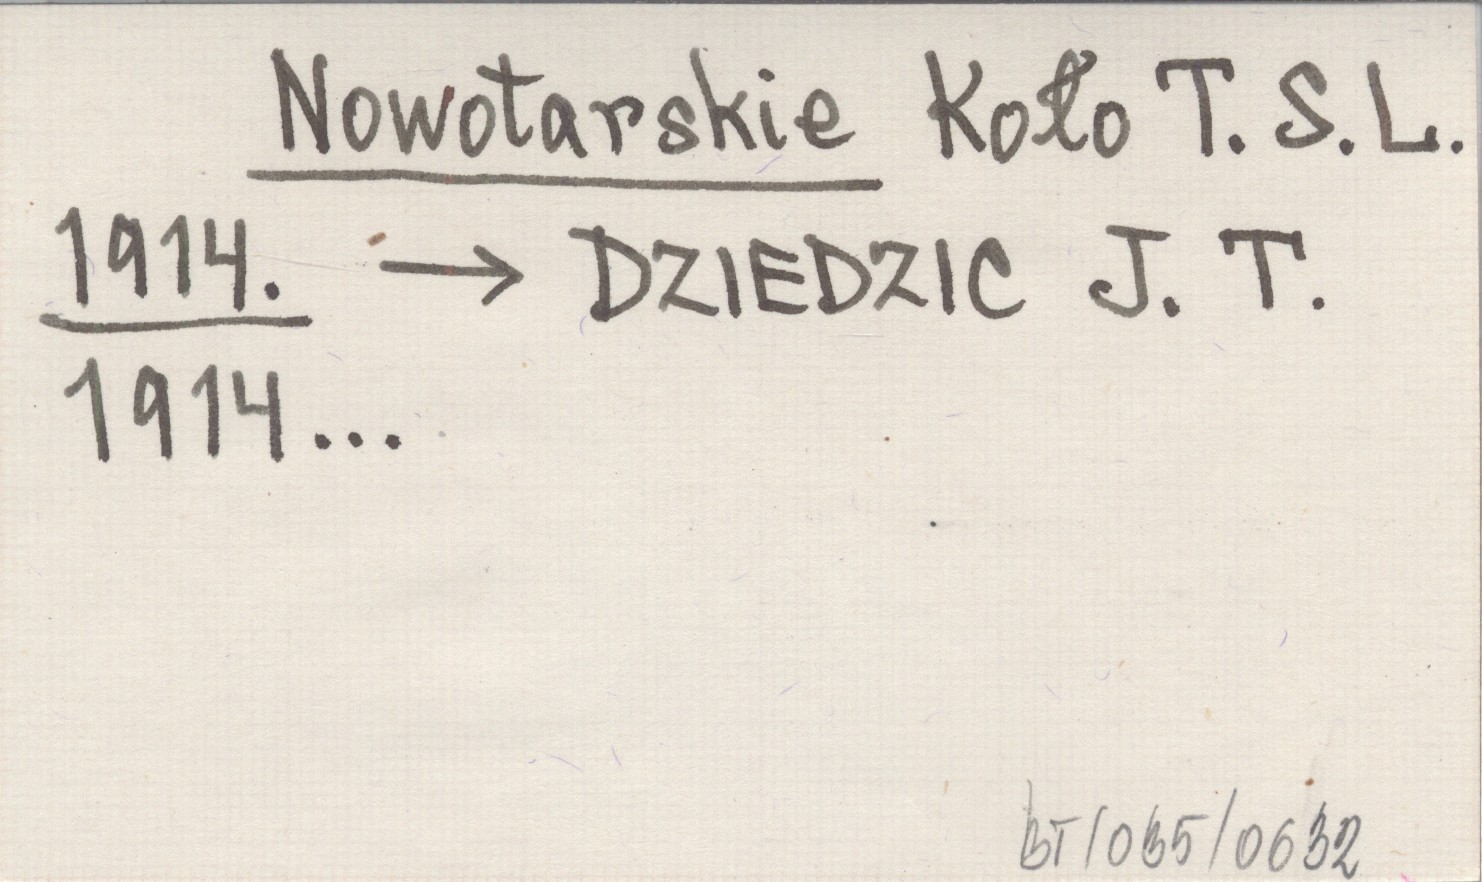 Nowotarskie Koło T. S. L.
1914. → DZIEDZIC J. T.
1914...
BT/035/0632